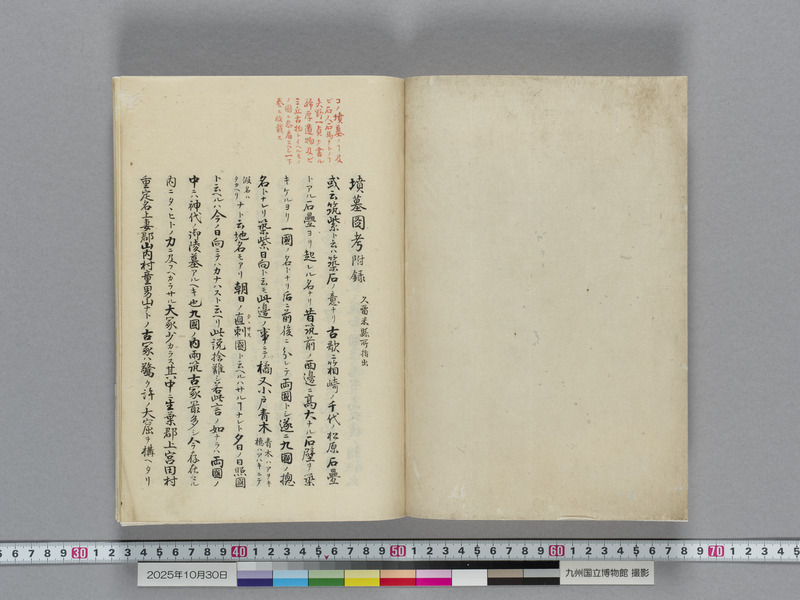 墳墓図考附録 久留米縣所指出
或云筑紫ト云ハ築石ノ意ナリ古歌ニ箱崎ノ千代ノ松原石疊
トアル石疊ヨリ起レル名ナリ昔筑前ノ西邊ニ高大ナル石壁ヲ築
キケルヨリ一國ノ名トナリ后ニ前後ニ分レテ両國トシ遂ニ九國ノ揔
名トナレリ築紫日向ト云モ此邊ノ事ニテ橘又小戸青木青木ハアヲキ橘ハツハキニテ
假名ハタカヘリナト云地名モアリ朝日ノ直刺國ト云ヘルハサルナレト夕日ノ日照國
ト云ヘルハ今ノ日向ニテハカナハスト云ヘリ此説捨難シ若此言ノ如ナラハ両國ノ
中ニハ神代ノ御陵墓アルヘキ也九國ノ内両筑古冢最多シ今存在スル
内ニタヽヒトノ力ニ及フヘカラサル大冢少カラス其中ニ生葉郡上宮田村
重定名上妻郡山内村童男山ナトノ古冢ハ驚ク許ノ大窟ヲ構ヘタリ
コノ墳墓ノ及
ビ石人石馬
大野一貞ノ書ル
2025年10月30日
九州国立博物館 撮影